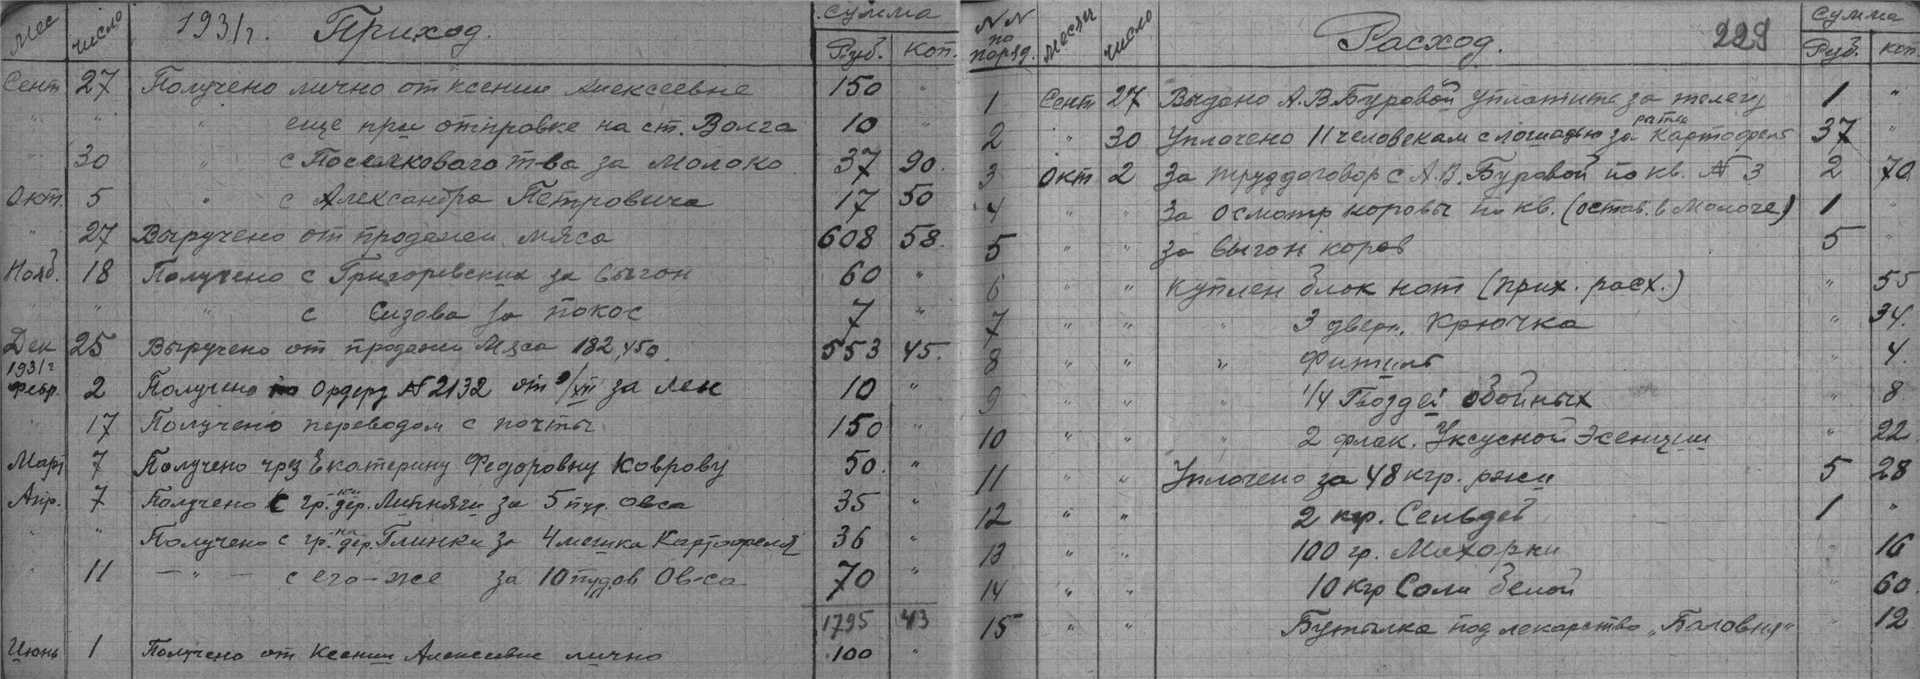 Мес число 1931г. Приход. сумма
Руб. коп.
Сент 27 Получено лично от Ксении Алексеевне 150 "
" " " еще при отправке на ст. Волга 10 "
" 30 " с Поселкового т-ва за молоко 37 90.
Окт. 5 " с Александра Петровича 17 50
" 27 Выручено от продажи мяса 608 58.
Нояб. 18 Получено с Григоревских за выгон 60 "
" " " с Сизова за покос 7 "
Дек 25 Выручено от продажи Мяса 182,450. 553 45.
1931г
Февр. 2 Получено по Ордеру № 2132 от 9/XII за лен 10 "
" 17 Получено переводом с почты 150 "
Март 7 Получено чрз Екатерину Федоровну Коврову 50. "
Апр. 7 Получено с гр-на дер. Липняги за 5 пуд. овса 35 "
" " Получено с гр-на дер. Глинки за 4 мешка Картофеля 36 "
" 11 — " — с его-же за 10 пудов Овса 70 "
1795 43
Июнь 1 Получено от Ксении Алексеевне лично 100 "
№№ по поряд. месяц число Расход. 229 сумма
Руб. коп
1 Сент 27 Выдано А.В. Буровой уплатить за телегу 1 "
2 " 30 Уплочено 11 человекам с лошадью за рытье Картофеля 37 "
3 Окт 2 За труддоговор с А.В. Буровой по кв. № 3 2 70
4 " " За осмотр коровы по кв. (остав. в Мологе) 1 "
5 " " за выгон коров 5 "
6 " " Куплен блок нот (прих. расх.) " 55
7 " " " 3 дверн. Крючка " 34.
8 " " " Фитиль " 4.
9 " " " 1/4 Гвоздей обойных " 8
10 " " " 2 флак. Уксусной Эсенции " 22
11 " " Уплочено за 48 кгр. ржи 5 28
12 " " 2 кгр. Сельдей 1 "
13 " " 100 гр. Махорки " 16
14 " " 10 кгр Соли белой " 60.
15 " " Бутылка под лекарство „Баловня“ " 12